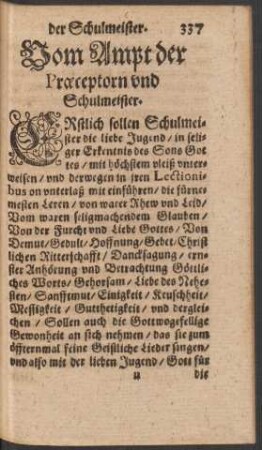 der Schulmeister. 337
Vom Ampt der
Præceptorn vnd
Schulmeister.
ERstlich sollen Schulmei
ster die liebe Jugend / in seli
ger Erkentnis des Sons Got
tes / mit höchstem vleiß vnter
weisen / vnd derwegen in jren Lectioni
bus on vnterlaß mit einführen / die fürne
mesten Leren / von warer Rhew vnd Leid /
Vom waren seligmachendem Glauben /
Von der Furcht vnd Liebe Gottes / Von
Demut / Gedult / Hoffnung / Gebet / Christ
lichen Ritterschafft / Dancksagung / ern
ster Anhörung vnd Betrachtung Göttli
ches Worts / Gehorsam / Liebe des Nehe
sten / Sanfftmut / Einigkeit / Keuschheit /
Messigkeit / Gutthetigkeit / vnd derglei
chen / Sollen auch die Gottwogefellige
Gewonheit an sich nehmen / das sie zum
öffternmal feine Geistliche Lieder singen /
vnd also mit der lieben Jugend / Gott für
u die